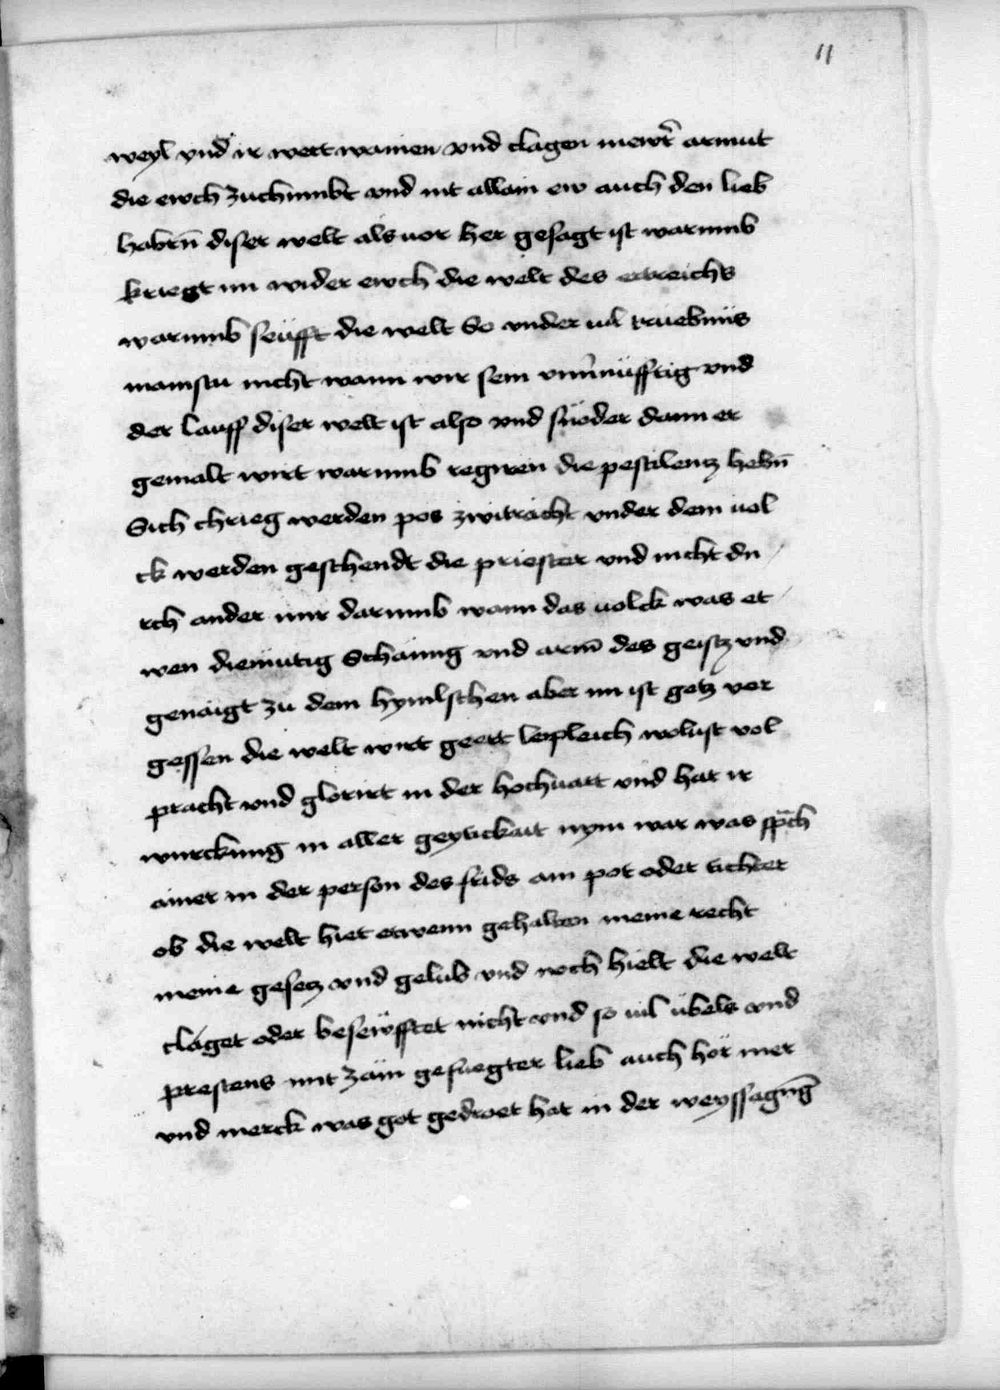 11
weyl vnd ir wert wainen vnd clagen mewr̄ armut
die ewch zuchumbt vnd nit allain ew auch den lieb
habrn̄ diser welt als uor her gesagt ist warumb
kriegt nu wider ewch die welt des ertreichs
warumb seüfft die welt So vnder uil trüebnüs
mainstu nicht wann wir sein vnuernüfftig vnd
der lauff diser welt ist also vnd snöder dann er
gemalt wirt warumb regiren die pestilentz hebn̄
Sich chrieg werden pos zwitracht vnder dem uol
ck werden geschendt die priester vnd nicht du
rch ander nur darumb wann das uolck was et
wen diemütig Schäuig vnd arm̄ des geistz vnd
genaigt zu dem hymlschen aber nu ist getz ver
gessen die welt wirt geert leipleich wolust vol
pracht vnd glorirt in der hochuart vnd hat ir
wurckung in aller geytickait nym war was sp̄ch
ainer in der person des frids ain pot oder tichter
ob die welt hiet etwenn gehalten meine recht
meine gesetz vnd gelub vnd noch hielt die welt
claget oder besewfftet nicht vnd so uil übels vnd
prestens mit zäm gefuegter lieb auch hör mer
vnd merck was got gedroet hat in der weyssagūg